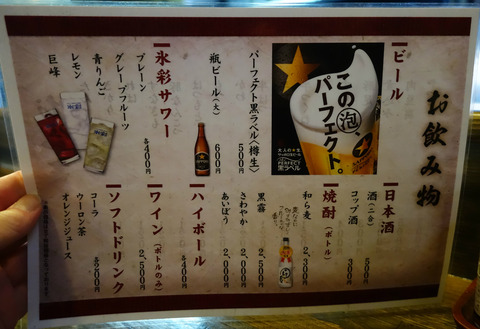 お飲み物
ビール
この泡、
パーフェクト。
パーフェクト黒ラベル〈樽生〉
500円
瓶ビール(大)
600円
氷彩サワー
プレーン
グレープフルーツ
青りんご
レモン
巨峰
各400円
日本酒
酒(二合) 500円
コップ酒 300円
焼酎(ボトル)
和ら麦 2,500円
黒霧 2,500円
さわやか 2,000円
あいぼう 2,000円
ハイボール
400円
ワイン(ボトルのみ)
2,500円
ソフトドリンク
コーラ
ウーロン茶
オレンジジュース